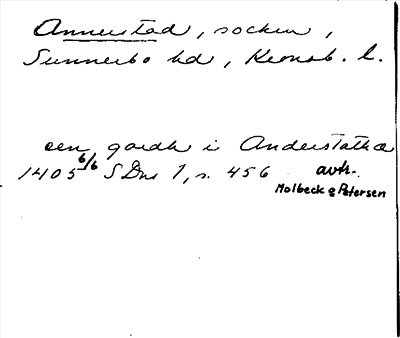 Annerstad, socken,
Sunnerbo hd, Kronob. l.
een gardh i Anderstatha
1405 6/6 SDns 1, s. 456 avtr.
Molbeck o Petersen